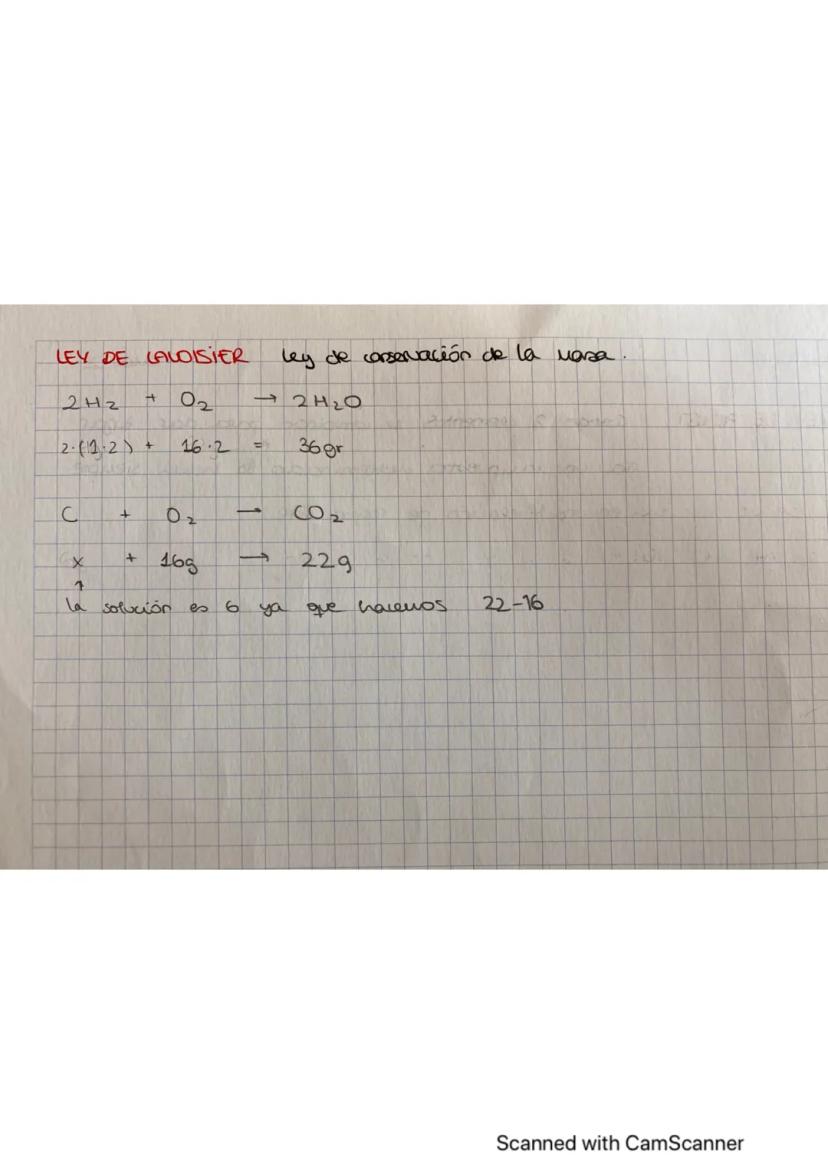 LEY DE LAVOISIER ley de conservación de la masa.
2H₂ + O₂ → 2H₂O
2·(1·2) + 16·2 = 36gr
C + O₂ → CO₂
x + 16g → 22g
↑
la solución es 6 ya que hacemos 22-16
Scanned with CamScanner